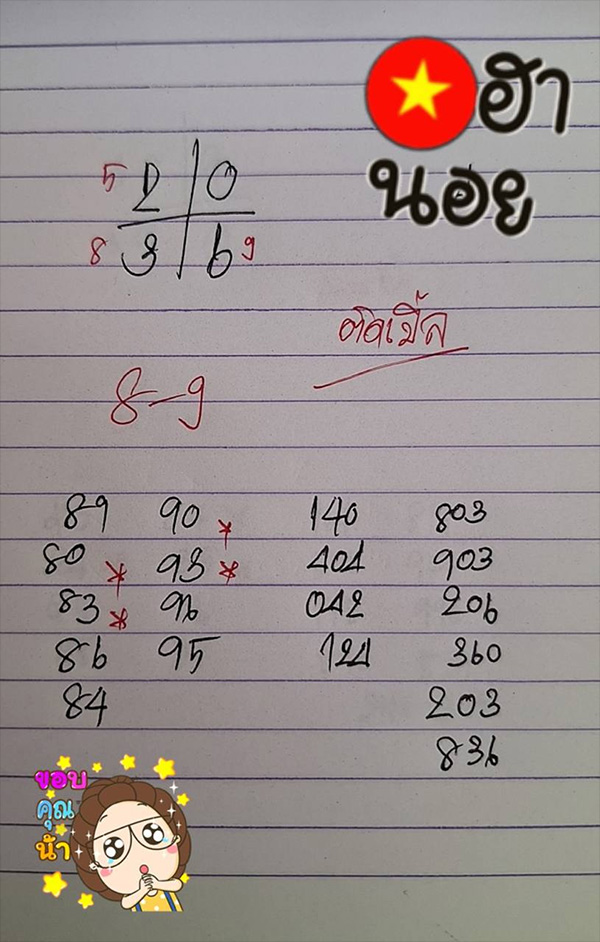 ฮา
นอย
5 2 0
8 3 6 9
ตัดเบิ้ล
8-9
89 90 * 140 803
80 * 93 * 404 903
83 * 96 042 206
86 95 124 360
84 203
836
ขอบ
คุณ
น้า